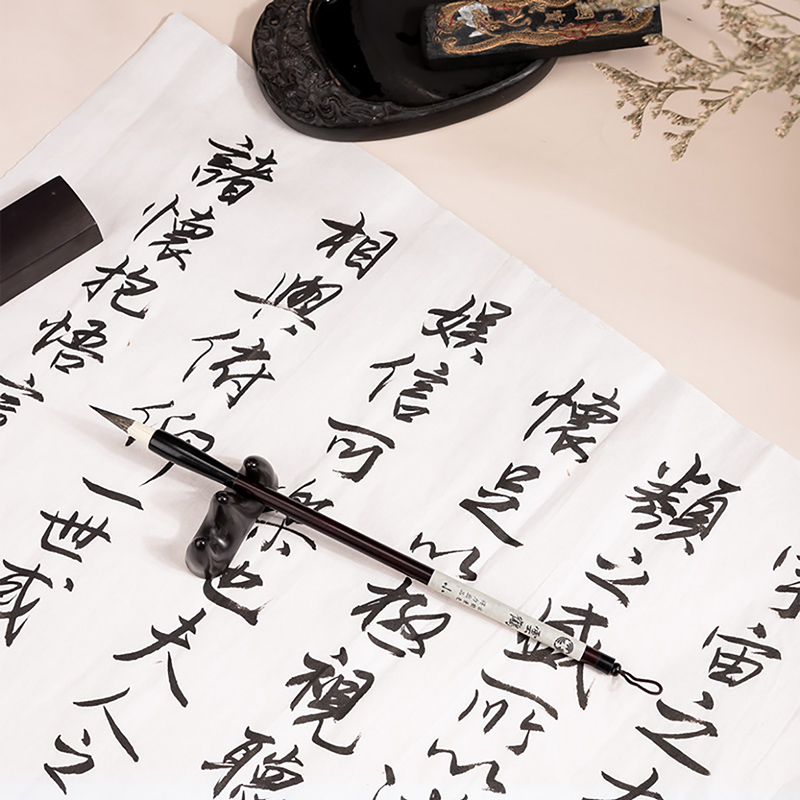 宇宙之大
類之盛所以
懷足以極視聽
娛信可樂也夫人之
相與俯仰一世或
諸懷抱悟言